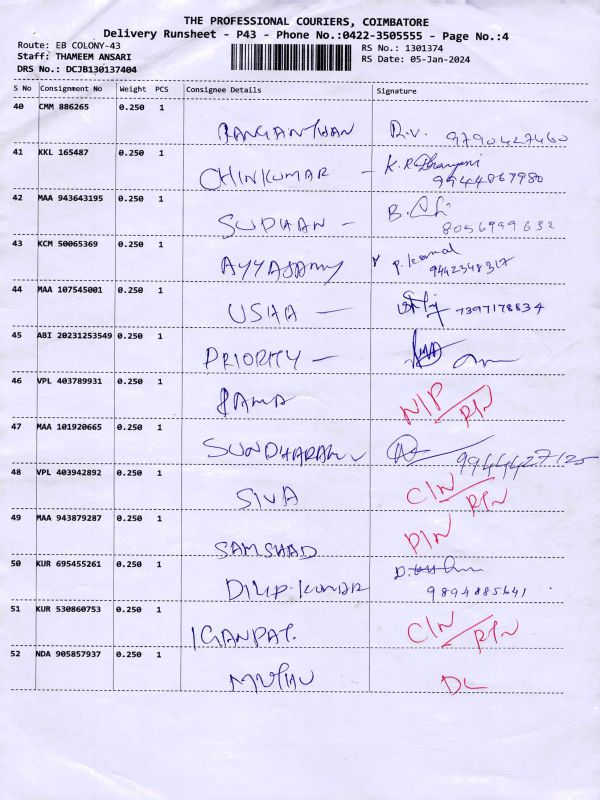 THE PROFESSIONAL COURIERS, COIMBATORE
Delivery Runsheet - P43 - Phone No.:0422-3505555 - Page No.:4
Route: EB COLONY-43 RS No.: 1301374
Staff: THAMEEM ANSARI RS Date: 05-Jan-2024
DRS No.: DCJB130137404
S No Consignment No Weight PCS Consignee Details Signature
40 CMM 886265 0.250 1
RANGANTHAN R.V. 9790427460
41 KKL 165487 0.250 1
CHINKUMAR - K.R. 9944867980
42 MAA 943643195 0.250 1
SUDHAN - B. 8056999632
43 KCM 50065369 0.250 1
AYYASAMY P. Kamal
9442348317
44 MAA 107545001 0.250 1
USHA - 7397178834
45 ABI 20231253549 0.250 1
PRIORITY -
46 VPL 403789931 0.250 1
RAMA N/P RTN
47 MAA 101920665 0.250 1
SUNDHARAM 9944427125
48 VPL 403942892 0.250 1
SIVA C/N RTN
49 MAA 943879287 0.250 1
SAMSHAD D/N
50 KUR 695455261 0.250 1
DILIP.KUMAR D.
9894885641
51 KUR 530860753 0.250 1
IGANPAT. C/N RTN
52 NDA 905857937 0.250 1
MUTHU DL